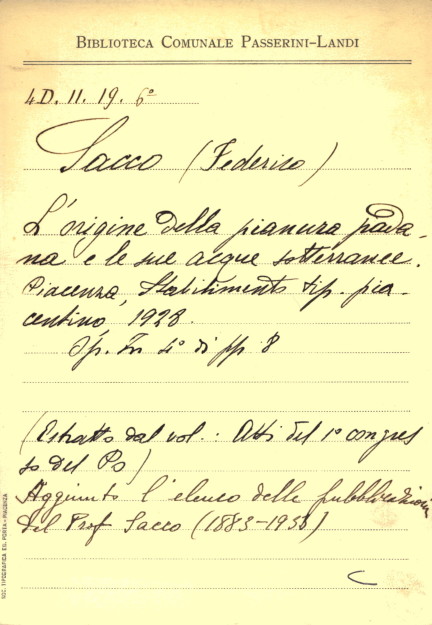 BIBLIOTECA COMUNALE PASSERINI-LANDI
4D. 11. 19. 6°
Sacco (Federico)
L'origine della pianura pada-
na e le sue acque sotterranee.
Piacenza, Stabilimento tip. pia-
centino, 1928.
In 4° di pp 8
(Estratto dal vol.: Atti del 1° congres
so del Po)
Aggiunto l'elenco delle pubblicazioni
del Prof Sacco (1883-
SOC. TIPOGRAFICA ED. PORTA - PIACENZA